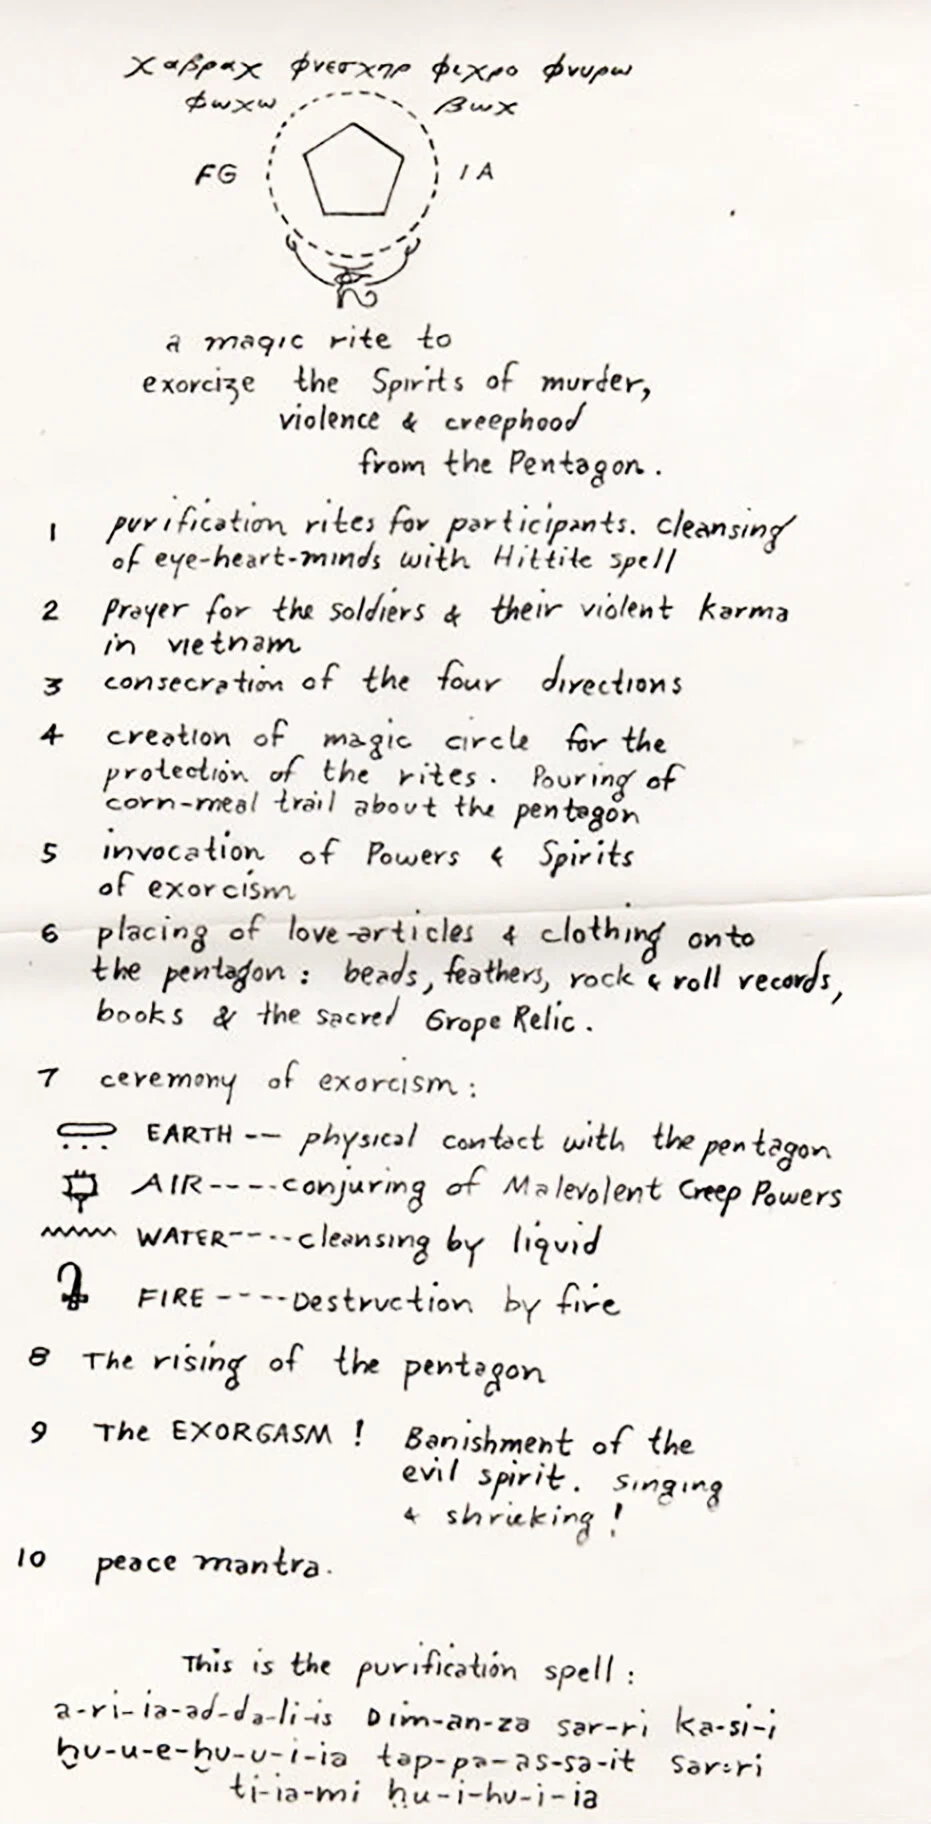 χαβραχ φνεσχηρ φιχρο φνυρω
φωχω βωχ
FG IA
a magic rite to
exorcize the Spirits of murder,
violence & creephood
from the Pentagon.
1 purification rites for participants. cleansing
of eye-heart-minds with Hittite spell
2 Prayer for the soldiers & their violent karma
in vietnam
3 consecration of the four directions
4 creation of magic circle for the
protection of the rites. Pouring of
corn-meal trail about the pentagon
5 invocation of Powers & Spirits
of exorcism
6 placing of love-articles & clothing onto
the pentagon: beads, feathers, rock & roll records,
books & the sacred Grope Relic.
7 ceremony of exorcism:
EARTH -- physical contact with the pentagon
AIR ---- conjuring of Malevolent Creep Powers
WATER ---- cleansing by liquid
FIRE ---- Destruction by fire
8 The rising of the pentagon
9 The EXORGASM! Banishment of the
evil spirit. Singing
& shrieking!
10 peace mantra.
This is the purification spell:
a-ri-ia-ad-da-li-is Dim-an-za sar-ri ka-si-i
ḫu-u-e-ḫu-u-i-ia tap-pa-as-sa-it sar-ri
ti-ia-mi ḫu-i-hu-i-ia